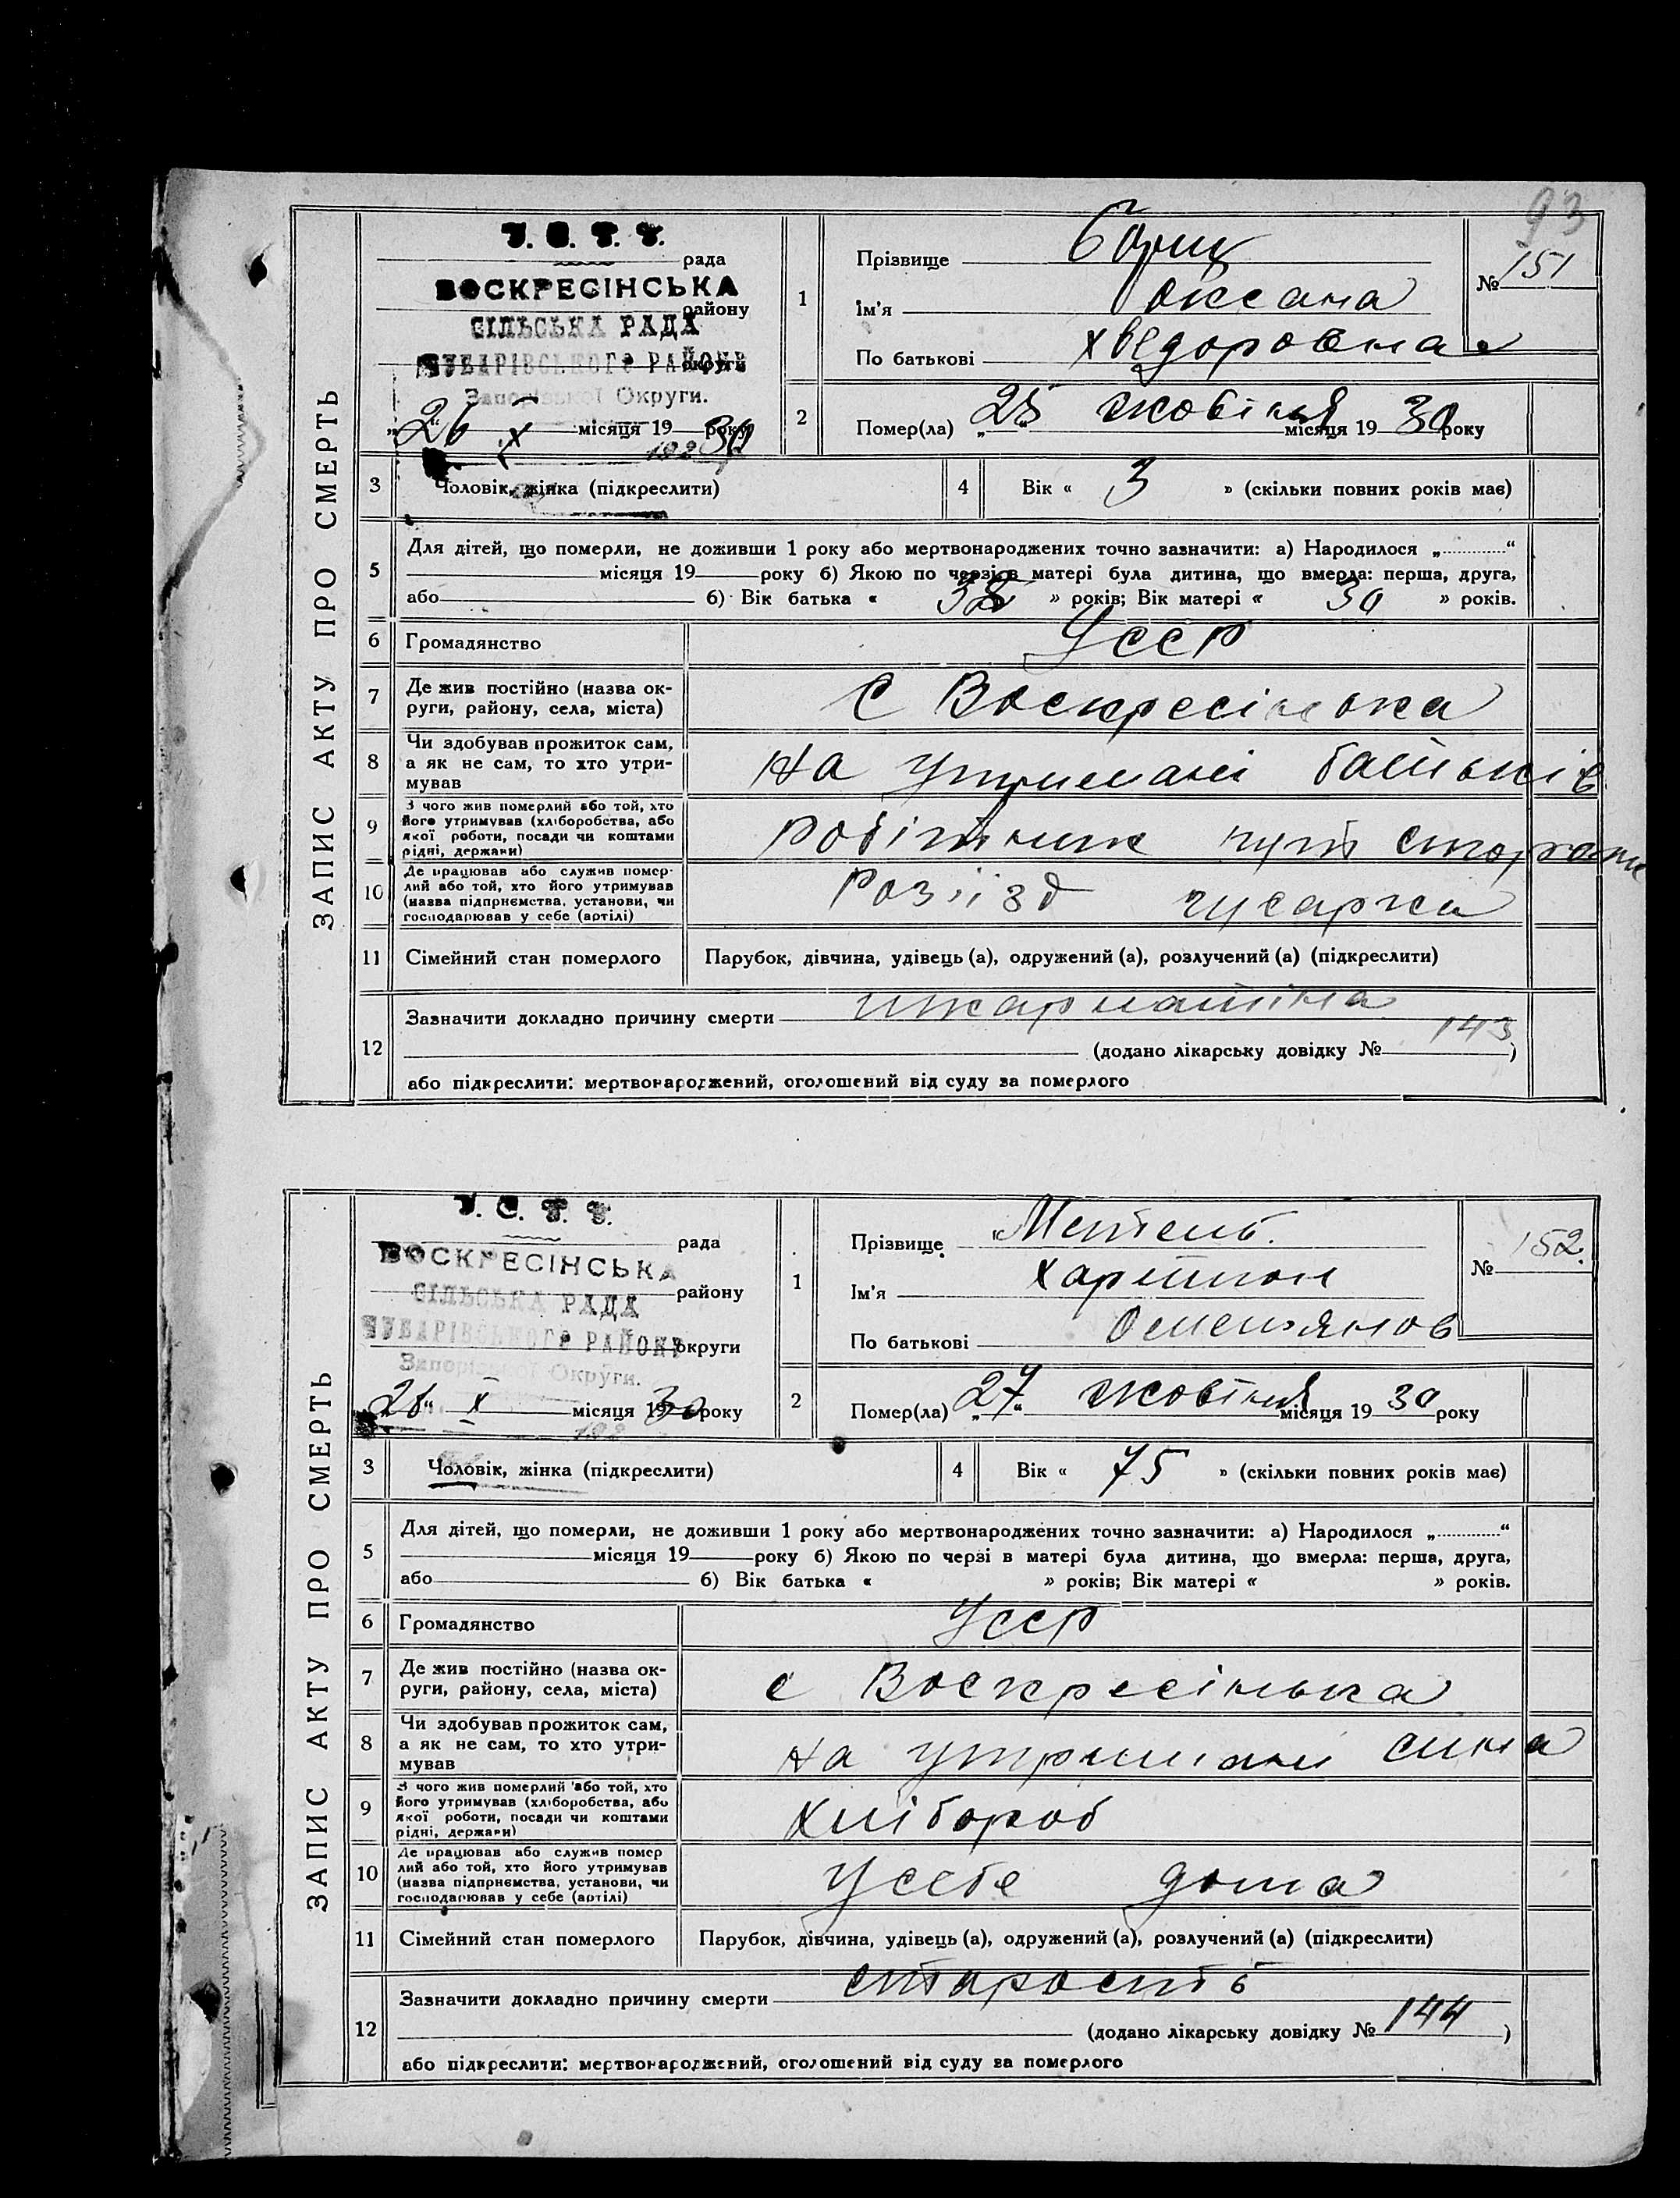 93
ЗАПИС АКТУ ПРО СМЕРТЬ
У. С. Р. Р.
рада
ВОСКРЕСІНСЬКА
району
СІЛЬСЬКА РАДА
ЧУБАРІВСЬКОГО РАЙОНУ
округи
Запорізької Округи.
„26“ X місяця 1930 року
192
1
Прізвище
Ім'я Оксана
По батькові Хведоровна
№ 151
2
Помер(ла) „25“ жовтня місяця 1930 року
3 Чоловік, жінка (підкреслити)
4 Вік « 3 » (скільки повних років має)
5
Для дітей, що померли, не доживши 1 року або мертвонароджених точно зазначити: а) Народилося „............“
місяця 19 року б) Якою по черзі в матері була дитина, що вмерла: перша, друга,
або б) Вік батька « 38 » років; Вік матері « 30 » років.
6 Громадянство УССР
7 Де жив постійно (назва ок-
руги, району, села, міста) С Воскресінська
8 Чи здобував прожиток сам,
а як не сам, то хто утри-
мував
на утримані батьків
9 З чого жив померлий або той, хто
його утримував (хліборобства, або
якої роботи, посади чи коштами
рідні, держави)
робітник
10 Де працював або служив помер-
лий або той, хто його утримував
(назва підприємства, установи, чи
господарював у себе (артілі)
Розіїзд Гусарка
11 Сімейний стан померлого Парубок, дівчина, удівець (а), одружений (а), розлучений (а) (підкреслити)
12
Зазначити докладно причину смерти шкарлатіна
(додано лікарську довідку № 143)
або підкреслити: мертвонароджений, оголошений від суду за померлого
ЗАПИС АКТУ ПРО СМЕРТЬ
У. С. Р. Р.
рада
ВОСКРЕСІНСЬКА
району
СІЛЬСЬКА РАДА
ЧУБАРІВСЬКОГО РАЙОНУ
округи
Запорізької Округи.
„28“ X місяця 1930 року
192
1
Прізвище
Ім'я Харитон
По батькові
№ 152.
2
Помер(ла) „27“ жовтня місяця 1930 року
3 Чоловік, жінка (підкреслити)
4 Вік « 75 » (скільки повних років має)
5
Для дітей, що померли, не доживши 1 року або мертвонароджених точно зазначити: а) Народилося „............“
місяця 19 року б) Якою по черзі в матері була дитина, що вмерла: перша, друга,
або б) Вік батька « » років; Вік матері « » років.
6 Громадянство УССР
7 Де жив постійно (назва ок-
руги, району, села, міста) с Воскресінька
8 Чи здобував прожиток сам,
а як не сам, то хто утри-
мував
на утримані сина
9 З чого жив померлий або той, хто
його утримував (хліборобства, або
якої роботи, посади чи коштами
рідні, держави)
Хлібороб
10 Де працював або служив помер
лий або той, хто його утримував
(назва підприємства, установи, чи
господарював у себе (артілі)
У себе дома
11 Сімейний стан померлого Парубок, дівчина, удівець (а), одружений (а), розлучений (а) (підкреслити)
12
Зазначити докладно причину смерти старость
(додано лікарську довідку № 144)
або підкреслити: мертвонароджений, оголошений від суду за померлого